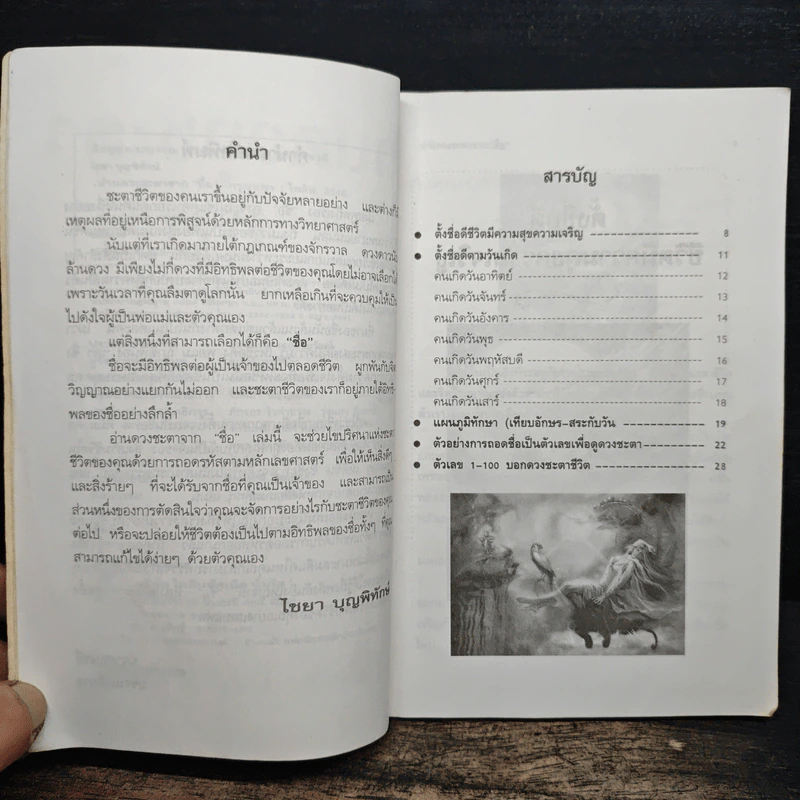 คำนำ
ชะตาชีวิตของคนเราขึ้นอยู่กับปัจจัยหลายอย่าง และต่างก็มี
เหตุผลที่อยู่เหนือการพิสูจน์ด้วยหลักการทางวิทยาศาสตร์
นับแต่ที่เราเกิดมาภายใต้กฎเกณฑ์ของจักรวาล ดวงดาวนับ
ล้านดวง มีเพียงไม่กี่ดวงที่มีอิทธิพลต่อชีวิตของคุณโดยไม่อาจเลือกได้
เพราะวันเวลาที่คุณลืมตาดูโลกนั้น ยากเหลือเกินที่จะควบคุมให้เป็น
ไปดังใจผู้เป็นพ่อแม่และตัวคุณเอง
แต่สิ่งหนึ่งที่สามารถเลือกได้ก็คือ "ชื่อ"
ชื่อจะมีอิทธิพลต่อผู้เป็นเจ้าของไปตลอดชีวิต ผูกพันกับจิต
วิญญาณอย่างแยกกันไม่ออก และชะตาชีวิตของเราก็อยู่ภายใต้อิทธิ-
พลของชื่ออย่างลึกล้ำ
อ่านดวงชะตาจาก "ชื่อ" เล่มนี้ จะช่วยไขปริศนาแห่งชะตา
ชีวิตของคุณด้วยการถอดรหัสตามหลักเลขศาสตร์ เพื่อให้เห็นสิ่งดีๆ
และสิ่งร้ายๆ ที่จะได้รับจากชื่อที่คุณเป็นเจ้าของ และสามารถเป็น
ส่วนหนึ่งของการตัดสินใจว่าคุณจะจัดการอย่างไรกับชะตาชีวิตของคุณ
ต่อไป หรือจะปล่อยให้ชีวิตต้องเป็นไปตามอิทธิพลของชื่อทั้งๆ ที่คุณ
สามารถแก้ไขได้ง่ายๆ ด้วยตัวคุณเอง
ไชยา บุญพิทักษ์
สารบัญ
● ตั้งชื่อดีชีวิตมีความสุขความเจริญ 8
● ตั้งชื่อดีตามวันเกิด 11
คนเกิดวันอาทิตย์ 12
คนเกิดวันจันทร์ 13
คนเกิดวันอังคาร 14
คนเกิดวันพุธ 15
คนเกิดวันพฤหัสบดี 16
คนเกิดวันศุกร์ 17
คนเกิดวันเสาร์ 18
● แผนภูมิทักษา (เทียบอักษร-สระกับวัน 19
● ตัวอย่างการถอดชื่อเป็นตัวเลขเพื่อดูดวงชะตา 22
● ตัวเลข 1-100 บอกดวงชะตาชีวิต 28